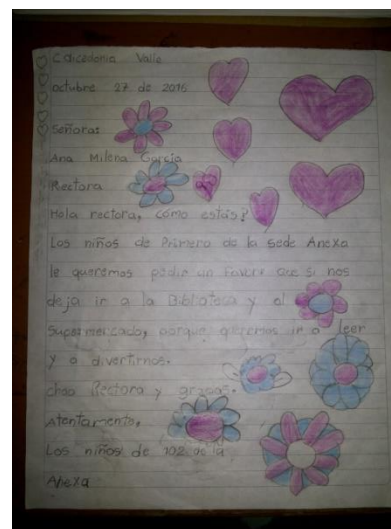 Caicedonia Valle
octubre 27 de 2016
Señora:
Ana Milena Garcia
Rectora
Hola rectora, cómo estás?
Los niños de Primero de la sede Anexa
le queremos pedir un Favor: que si nos
deja ir a la Biblioteca y al
Supermercado, porque queremos ir a leer
y a divertirnos.
chao Rectora y gracias.
Atentamente,
Los niños de 102 de la
Anexa